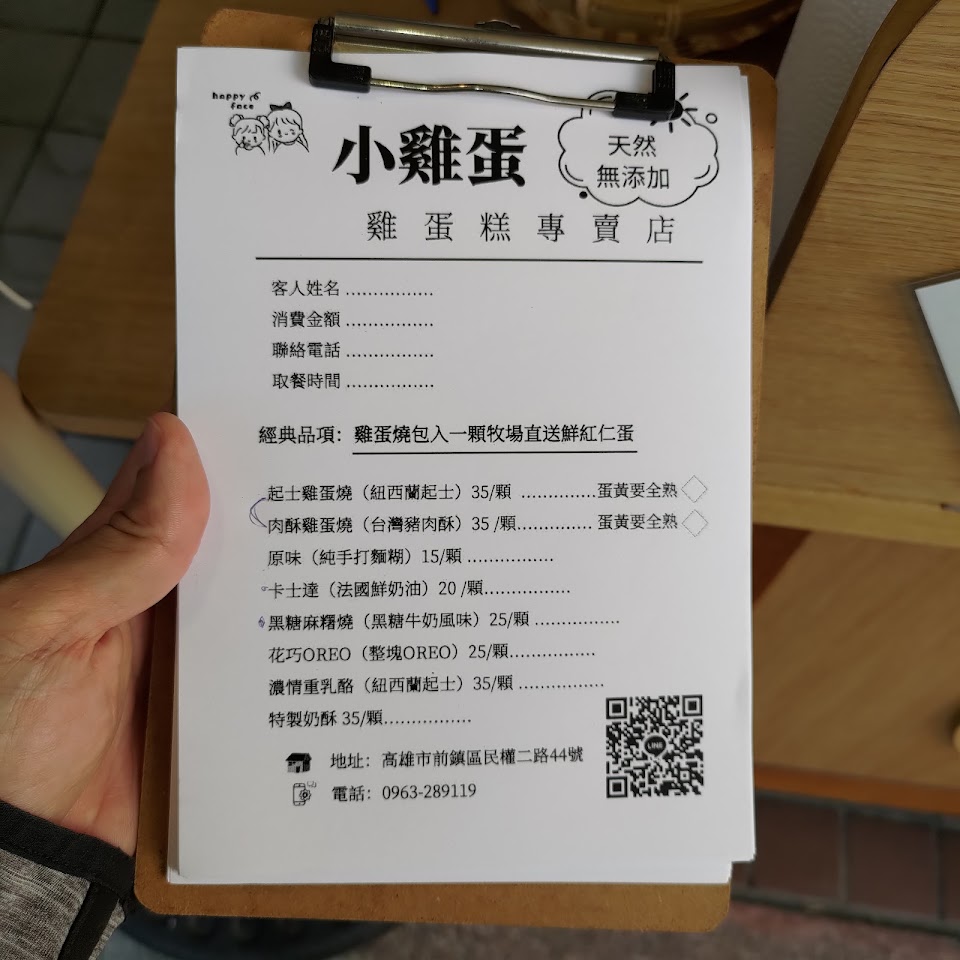 happy
face
小雞蛋
天然
無添加
雞蛋糕專賣店
客人姓名................
消費金額................
聯絡電話................
取餐時間................
經典品項：雞蛋燒包入一顆牧場直送鮮紅仁蛋
起士雞蛋燒（紐西蘭起士）35/顆 ..............蛋黃要全熟
肉酥雞蛋燒（台灣豬肉酥）35 /顆..............蛋黃要全熟
原味（純手打麵糊）15/顆 ................
卡士達（法國鮮奶油）20 /顆................
黑糖麻糬燒（黑糖牛奶風味）25/顆 ................
花巧OREO（整塊OREO）25/顆................
濃情重乳酪（紐西蘭起士）35/顆 ................
特製奶酥 35/顆................
LINE
地址：高雄市前鎮區民權二路44號
電話：0963-289119